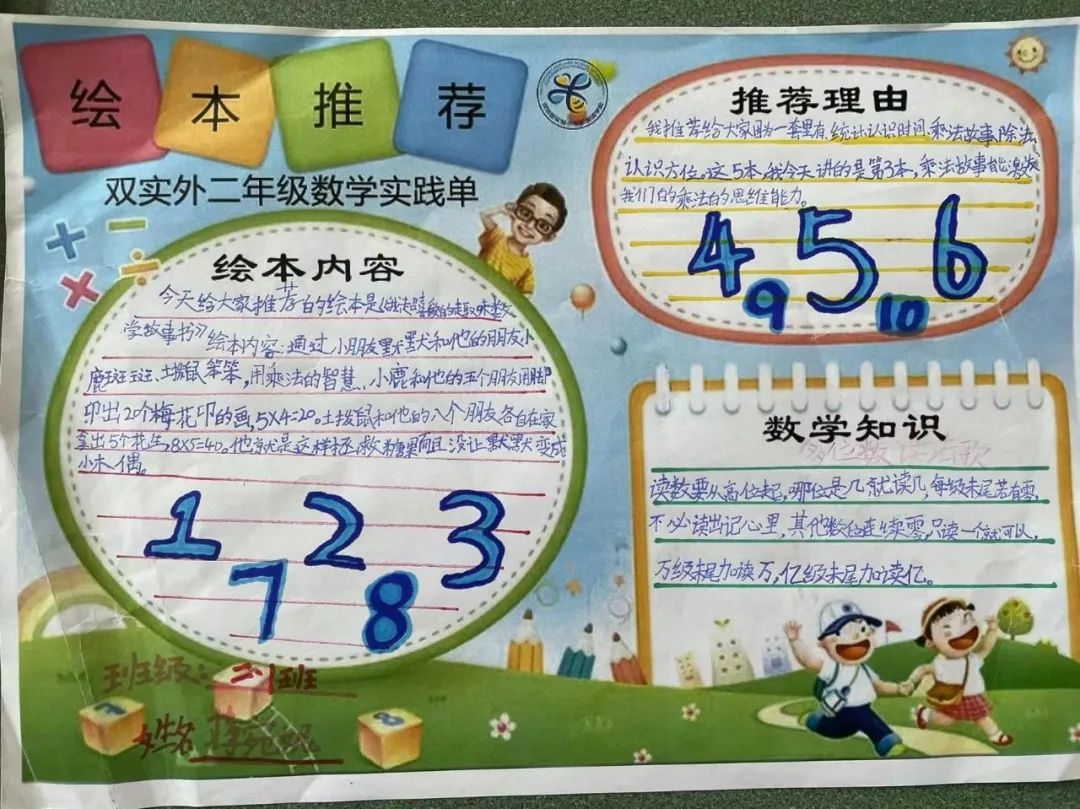 绘本推荐
双实外二年级数学实践单
绘本内容
今天给大家推荐的绘本是《
学故事书》绘本内容:通过小朋友默默和他的朋友小
鹿斑斑、土拨鼠笨笨,用乘法的智慧、小鹿和他的五个朋友用脚
印出20个梅花印的画,5×4=20。土拨鼠和他的八个朋友各自在家
拿出5个花生,8×5=40。他就是这样拯救糖果而且没让默默变成
小木偶。
1 2 3
7 8
班级:二1班
姓名
推荐理由
我推荐给大家因为一套里有统计认识时间、乘法故事、除法、
认识方位。这5本,我今天讲的是第3本,乘法故事能激发
我们的乘法的思维能力。
4 5 6
9 10
数学知识
多位数读法歌
读数要从高位起,哪位是几就读几,每级末尾若有零,
不必读出记心里,其他数位连续零,只读一个就可以,
万级末尾加读万,亿级末尾加读亿。